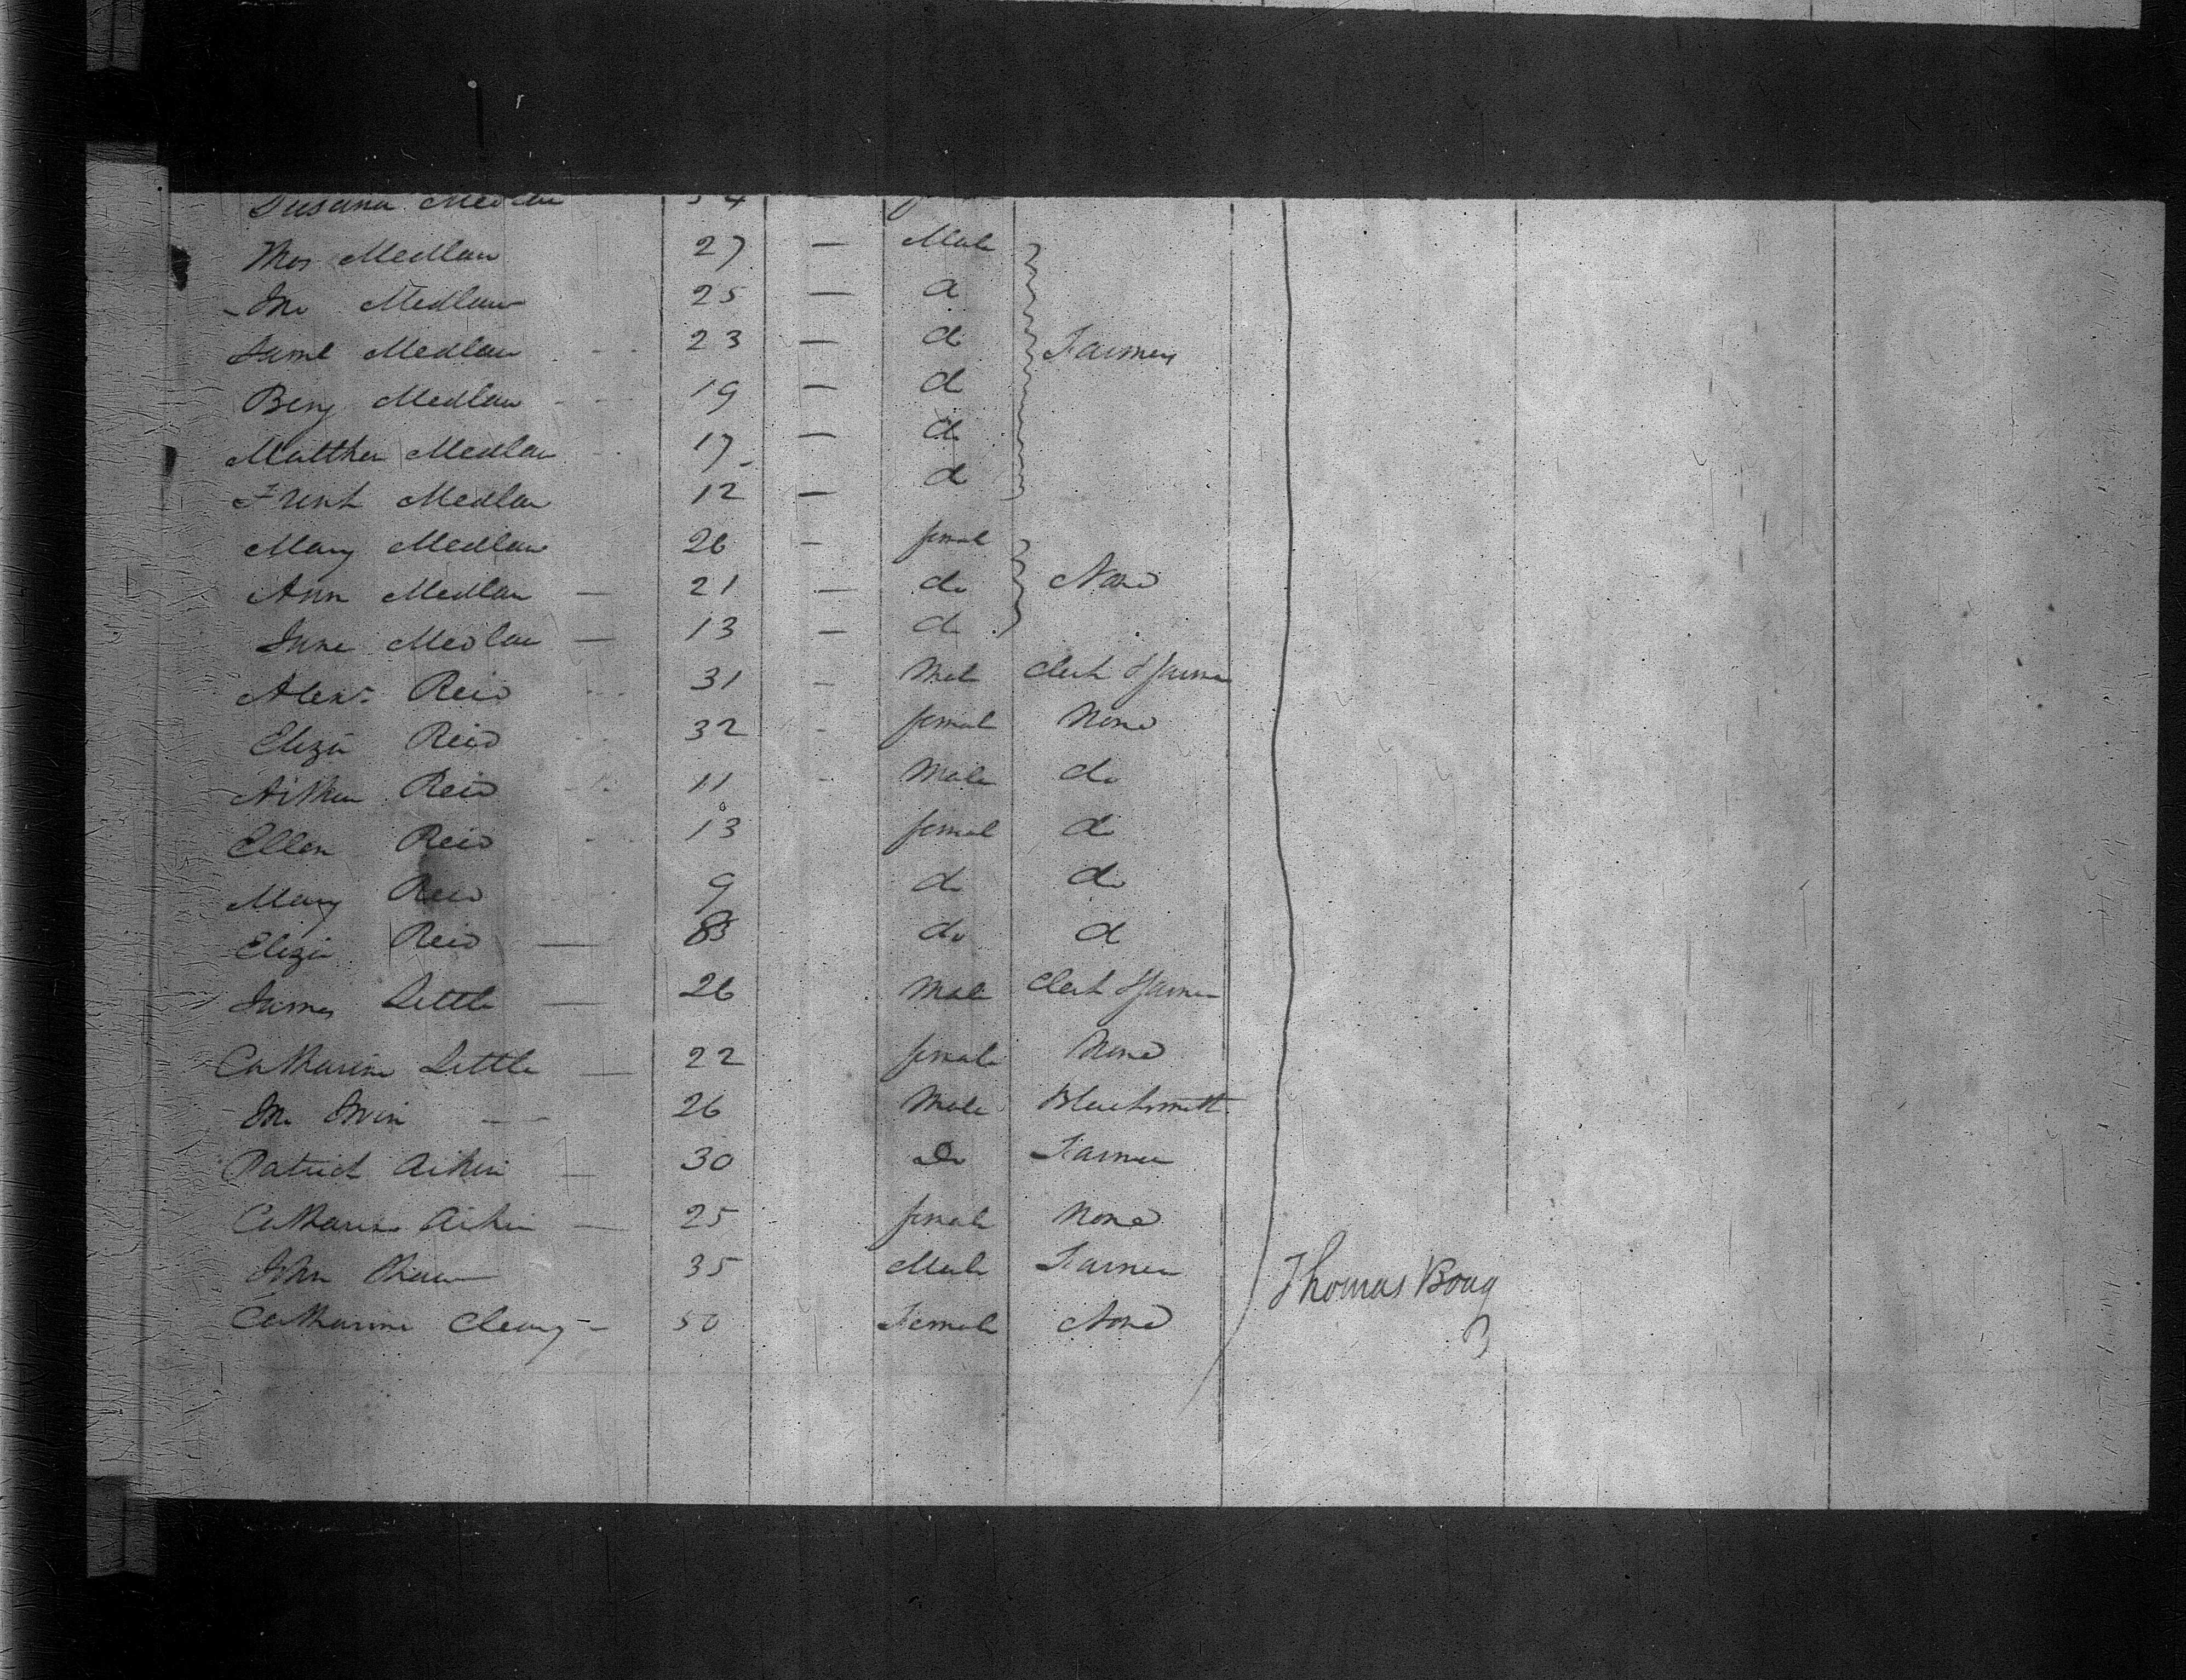 Susana Medlau 54
Thos Medlau 27 — Male
Jno Medlau 25 — do
Saml Medlau 23 — do Farmers
Benj Medlau 19 — do
Matthew Medlau 17 — do
Medlau 12 — do
Mary Medlau 26 — female
Ann Medlau — 21 — do None
Jane Medlau — 13 — do
Alexr Reid 31 - Male Clerk & farmer
Eliza Reid 32 - female None
Reid 11 - Male do
Ellen Reid 13 female do
Mary Reid 9 do do
Eliza Reid — do do
James Little — 26 Male Clerk & farmer
Catharine Little — 22 female None
Jno Irvin — 26 Male Blacksmith
Patrick Aikin — 30 Do Farmer
Catharine Aikin — 25 female None
John Shaw 35 Male Farmer
Catharine Cleary — 50 Female None
Thomas Boag